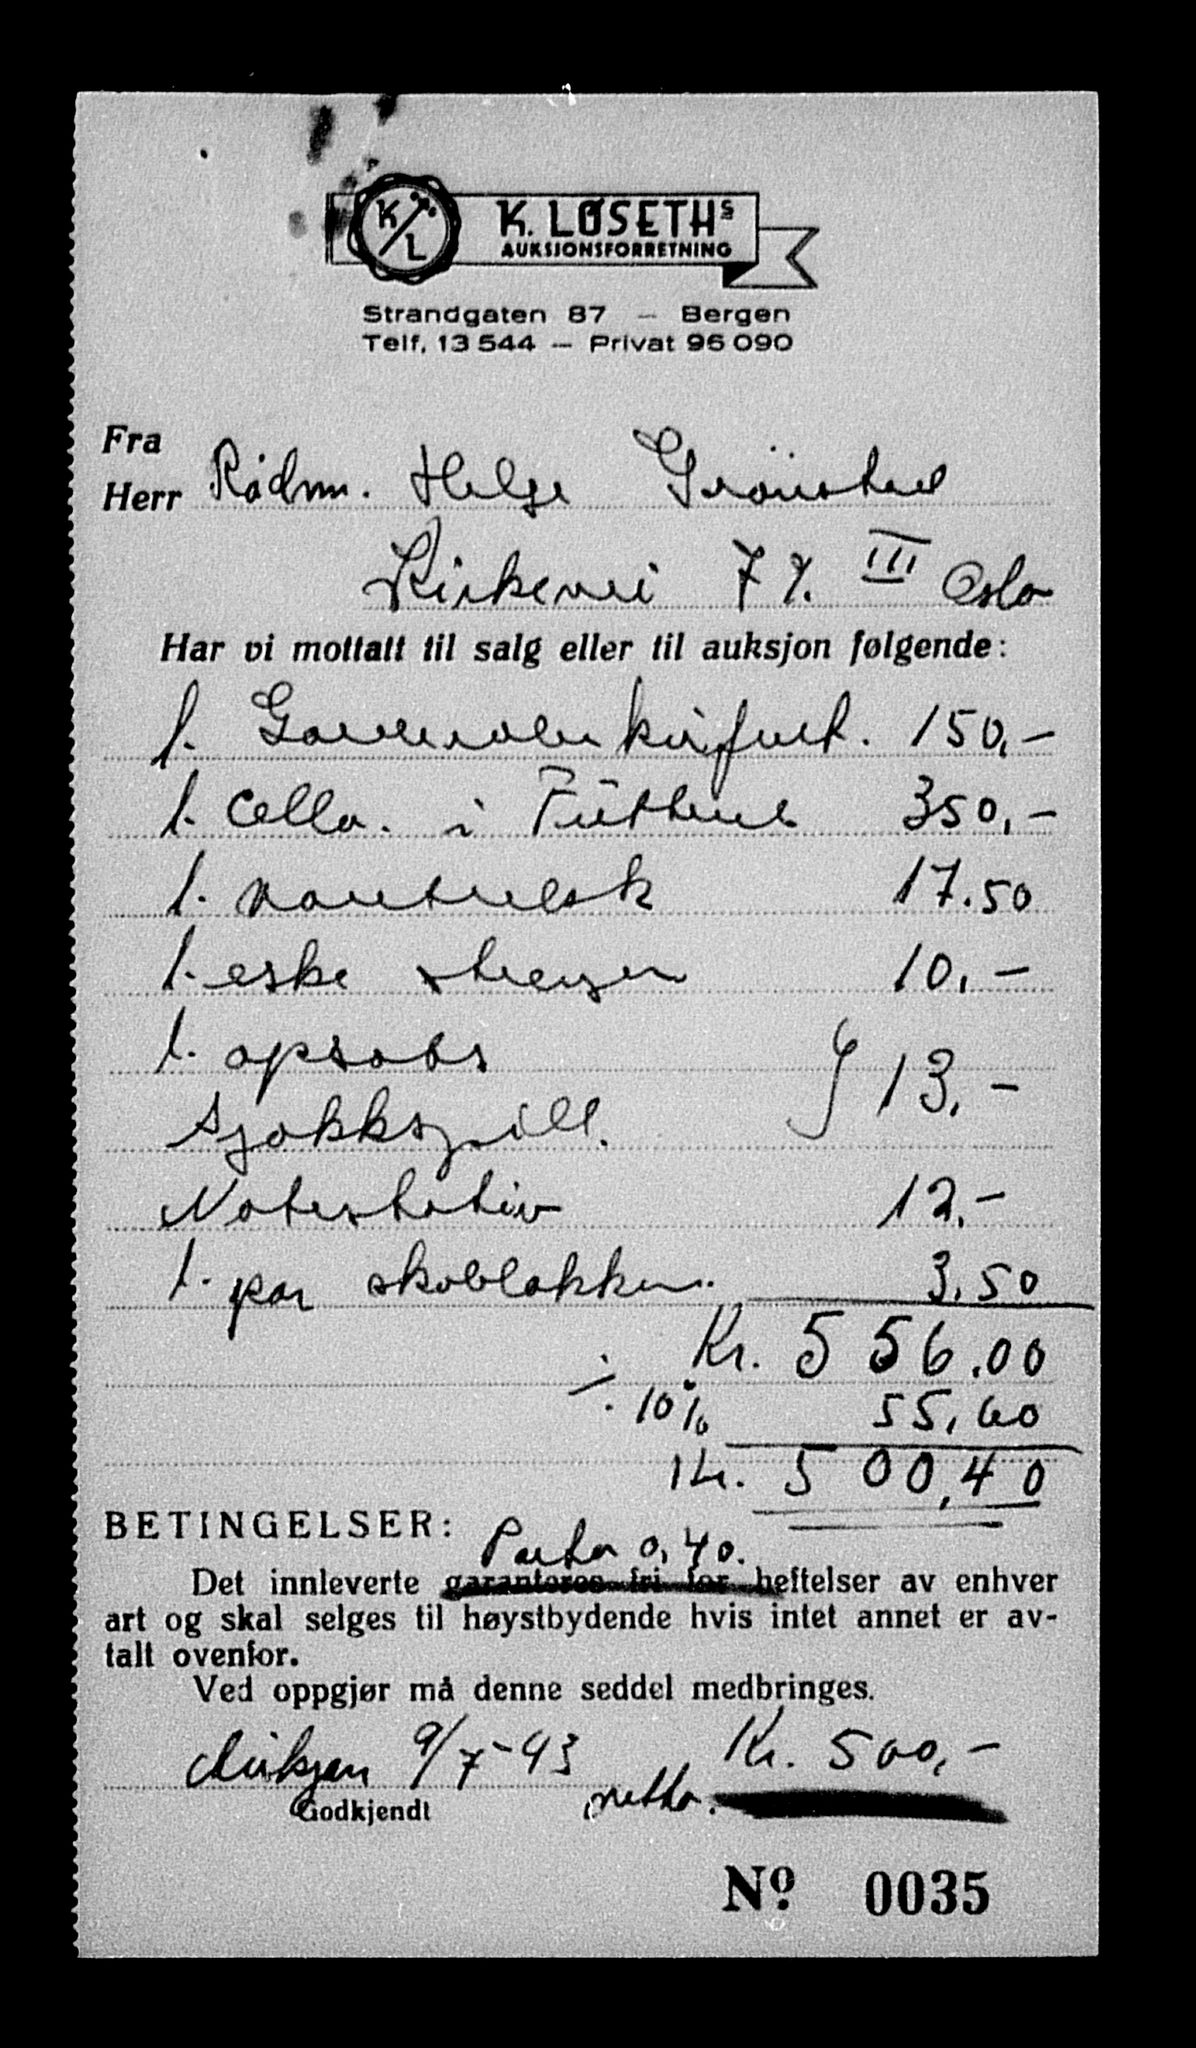 K L
K. LØSETHS
AUKSJONSFORRETNING
Strandgaten 87 — Bergen
Telf. 13 544 — Privat 96 090
Fra
Herr Rådm. Helge
Kirkevei 7 III Oslo
Har vi mottatt til salg eller til auksjon følgende:
1. 150,-
1. Cello. i 350,-
1. 17.50
1. eske strenger 10,-
1. opsats
sjakkspill. } 13,-
Notestativ 12,-
1. par skoblokker. 3,50
Kr. 556.00
÷ 10% 55,60
Kr. 500,40
BETINGELSER:
Porto 0,40.
Det innleverte garanteres fri for heftelser av enhver
art og skal selges til høystbydende hvis intet annet er av-
talt ovenfor.
Ved oppgjør må denne seddel medbringes.
9/7-43 Kr. 500,-
Godkjendt netto.
Nº 0035